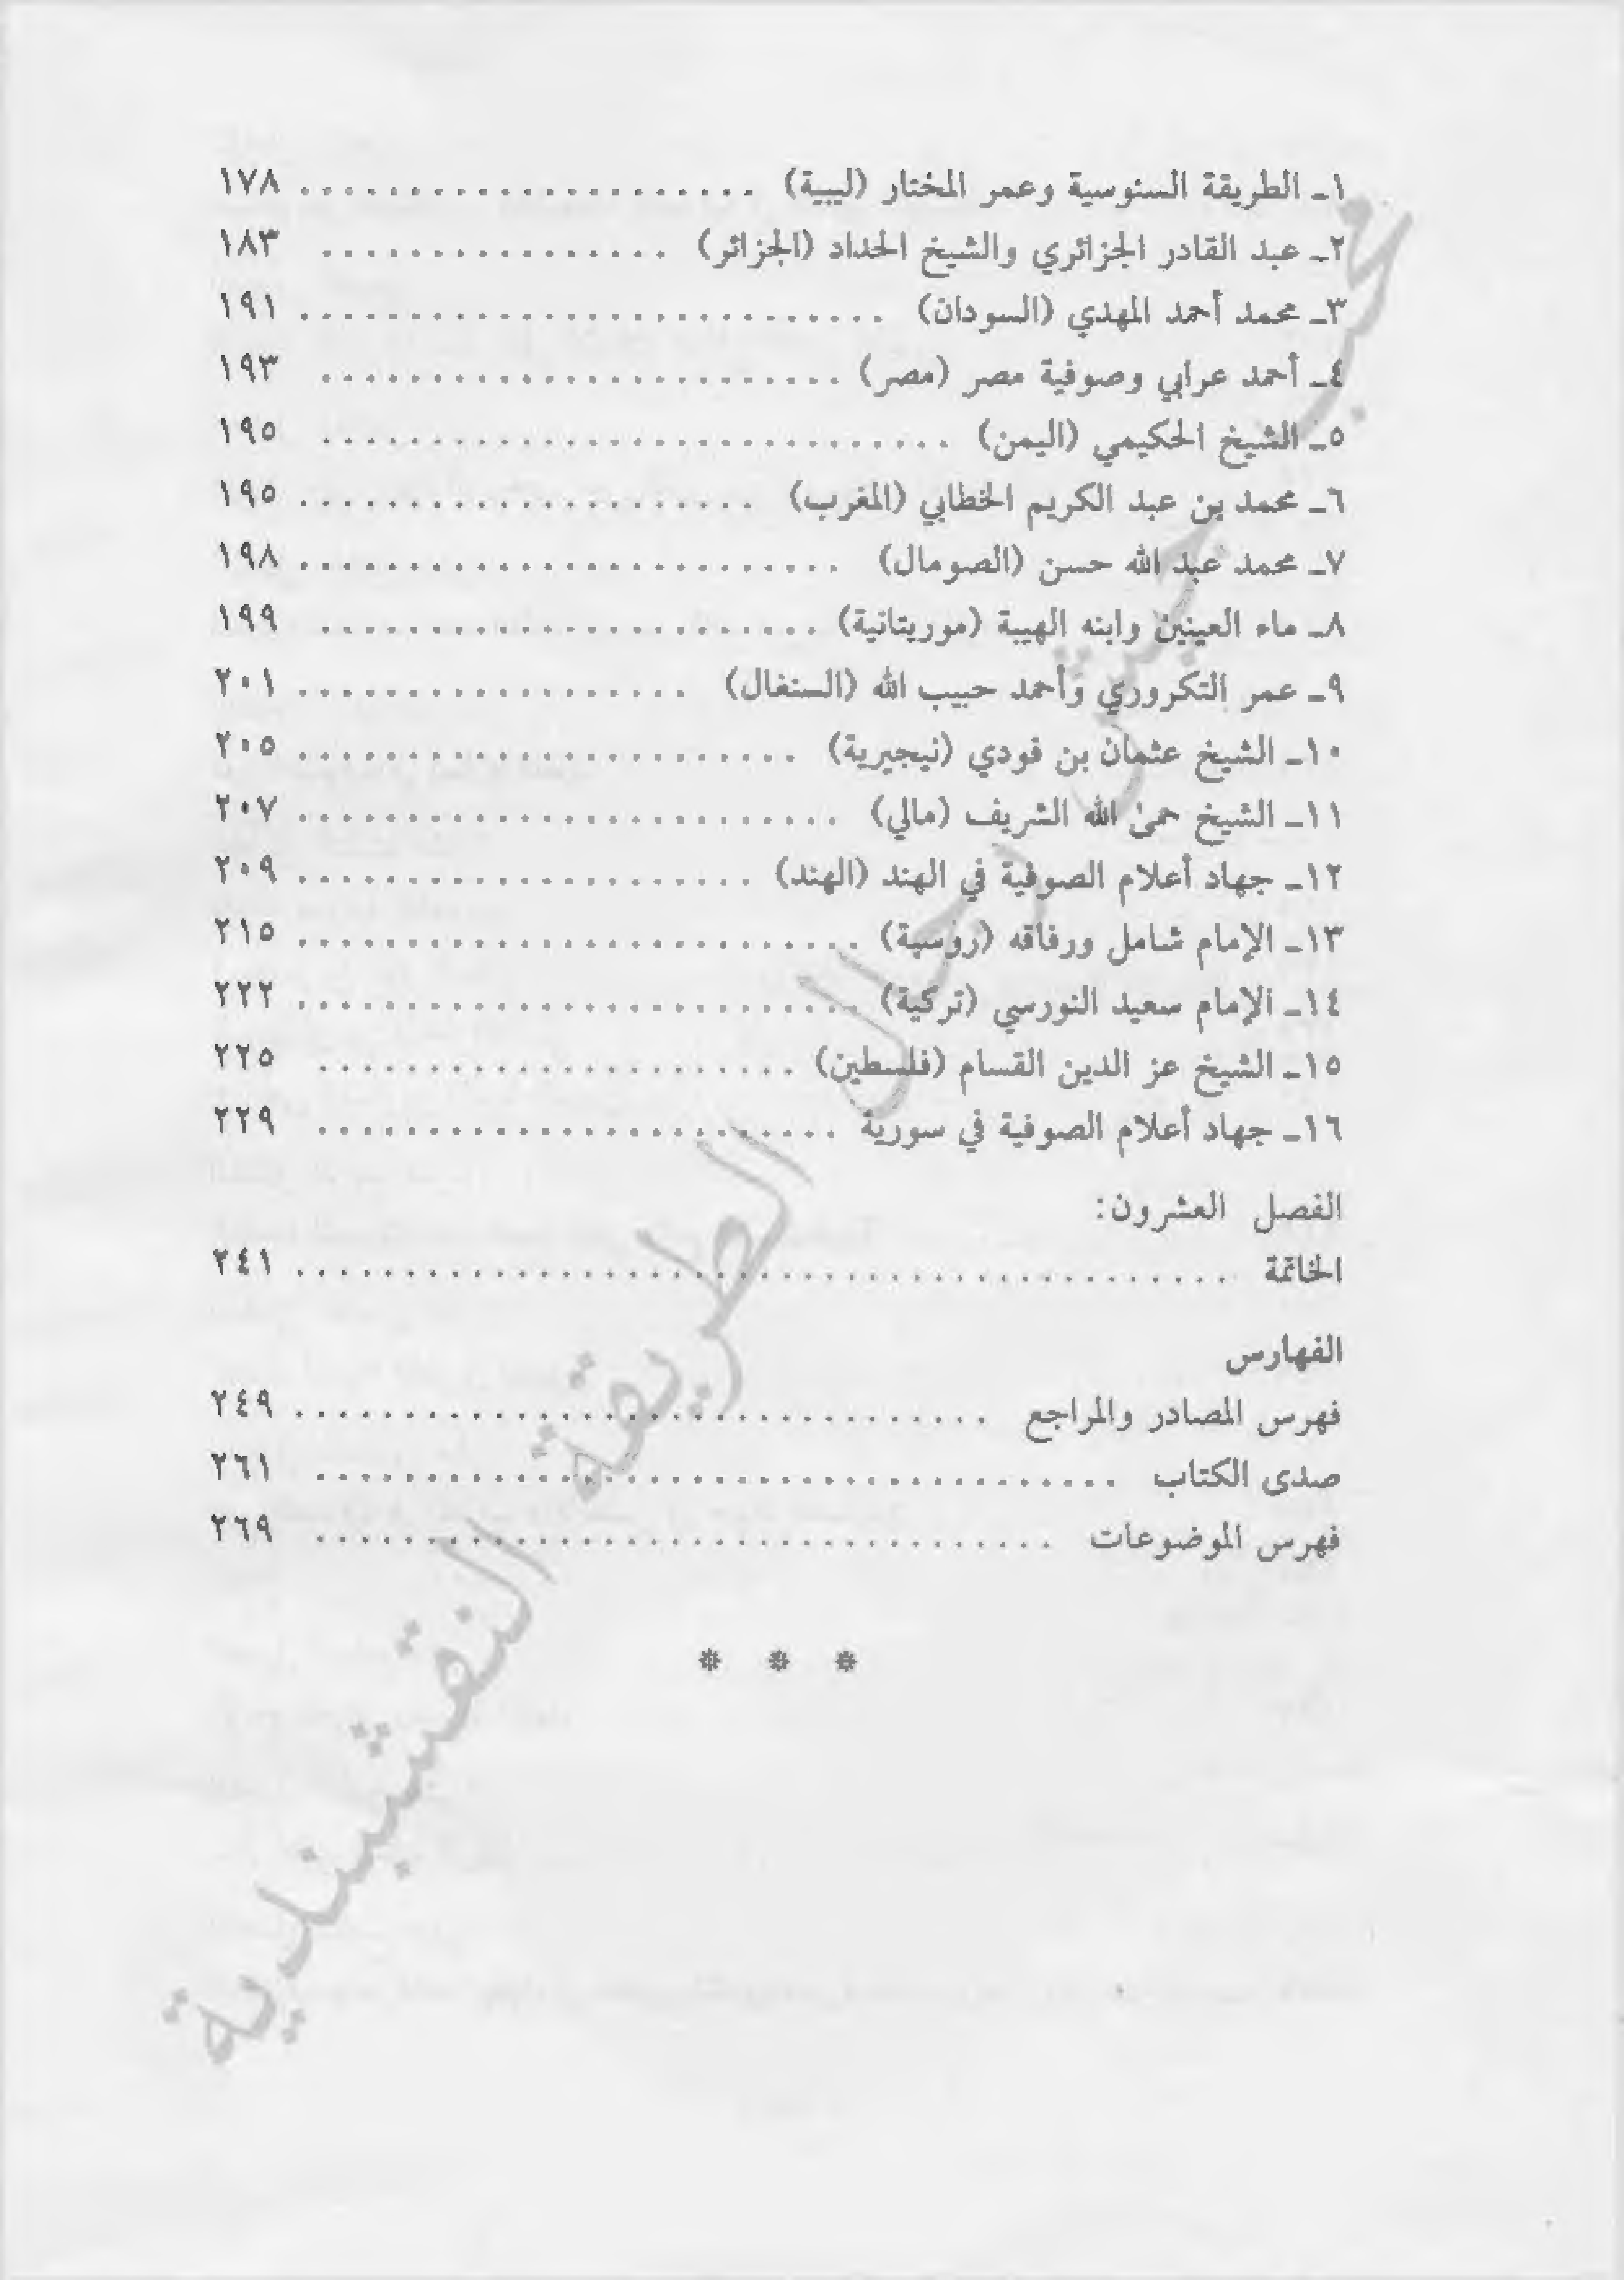 ١ـ الطريقة السنوسية وعمر المختار (ليبية) . . . . . . . . . . . . . . . . . . . . . ١٧٨
٢ـ عبد القادر الجزائري والشيخ الحداد (الجزائر) . . . . . . . . . . . . . . . . ١٨٣
٣ـ محمد أحمد المهدي (السودان) . . . . . . . . . . . . . . . . . . . . . . . . . . . ١٩١
٤ـ أحمد عرابي وصوفية مصر (مصر) . . . . . . . . . . . . . . . . . . . . . . . . ١٩٣
٥ـ الشيخ الحكيمي (اليمن) . . . . . . . . . . . . . . . . . . . . . . . . . . . . . ١٩٥
٦ـ محمد بن عبد الكريم الخطابي (المغرب) . . . . . . . . . . . . . . . . . . . . . ١٩٥
٧ـ محمد عبد الله حسن (الصومال) . . . . . . . . . . . . . . . . . . . . . . . . . ١٩٨
٨ـ ماء العينين وابنه الهيبة (موريتانية) . . . . . . . . . . . . . . . . . . . . . . . ١٩٩
٩ـ عمر التكروري وأحمد حبيب الله (السنغال) . . . . . . . . . . . . . . . . . . ٢٠١
١٠ـ الشيخ عثمان بن فودي (نيجيرية) . . . . . . . . . . . . . . . . . . . . . . . ٢٠٥
١١ـ الشيخ حمىٰ الله الشريف (مالي) . . . . . . . . . . . . . . . . . . . . . . . . . ٢٠٧
١٢ـ جهاد أعلام الصوفية في الهند (الهند) . . . . . . . . . . . . . . . . . . . . . ٢٠٩
١٣ـ الإمام شامل ورفاقه (روسية) . . . . . . . . . . . . . . . . . . . . . . . . . . ٢١٥
١٤ـ الإمام سعيد النورسي (تركية) . . . . . . . . . . . . . . . . . . . . . . . . . . ٢٢٢
١٥ـ الشيخ عز الدين القسام (فلسطين) . . . . . . . . . . . . . . . . . . . . . . ٢٢٥
١٦ـ جهاد أعلام الصوفية في سورية . . . . . . . . . . . . . . . . . . . . . . . . ٢٢٩
الفصل العشرون:
الخاتمة . . . . . . . . . . . . . . . . . . . . . . . . . . . . . . . . . . . . . . . . . . . ٢٤١
الفهارس
فهرس المصادر والمراجع . . . . . . . . . . . . . . . . . . . . . . . . . . . . . . . . ٢٤٩
صدى الكتاب . . . . . . . . . . . . . . . . . . . . . . . . . . . . . . . . . . . . . ٢٦١
فهرس الموضوعات . . . . . . . . . . . . . . . . . . . . . . . . . . . . . . . . . . ٢٦٩
* * *
رجال الطريقة النقشبندية